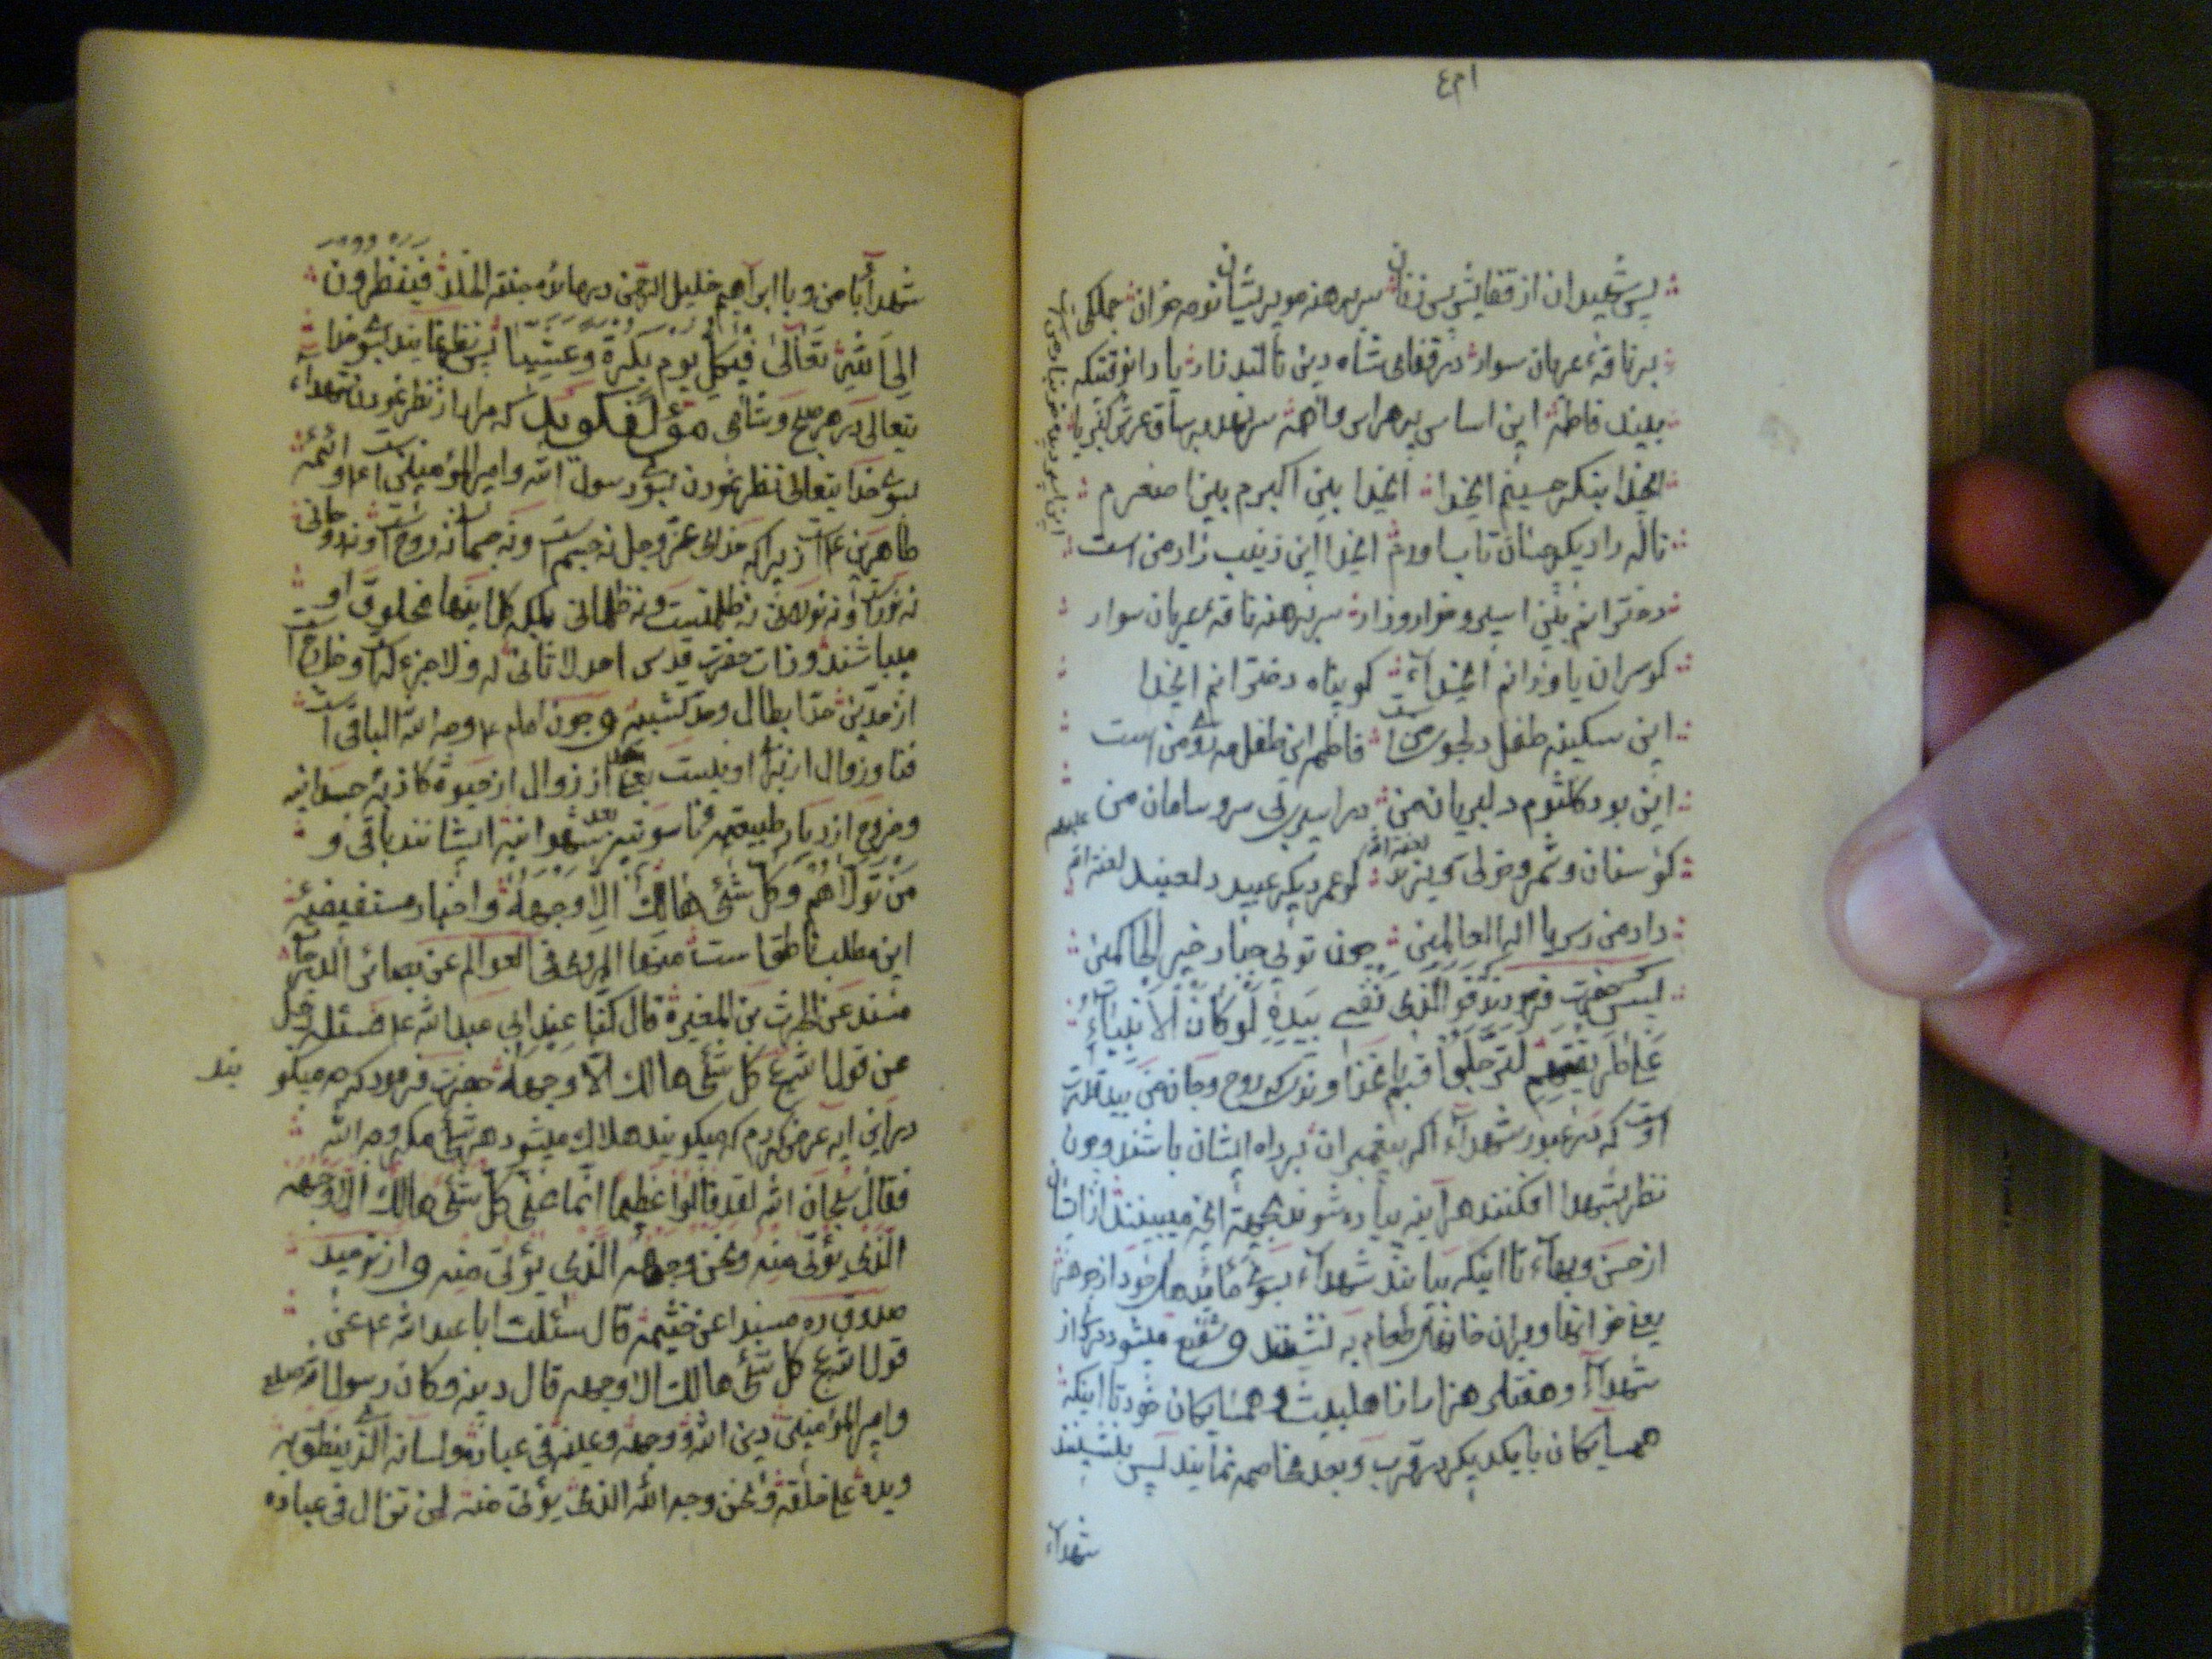 پس شهیدان از قفایش سر زنان سر برهنه مو پریشان نوحه خوان جملگی
بر ناقهٔ عریان سوار در قفای شاه دین نالند زار یا دانوقتیکه
بیند فاطمه این اساس پر هراس واهمه سر نهد بر ساق عرش کبریا
ایخدا بنگر حسینم ایخدا ایخدا بین اکبرم بین اصغرم
ناله را دیگر عنان تا بیاورم ایخدا این زینب زار من است
دخترانم بین اسیر و خوار و زار سر برهنه ناقه عریان سوار
کو سران یاورانم ایخدا کو پناه دخترانم ایخدا
این سکینه طفل دلجوی من است فاطمه این طفل مه روی من است
این بود کلثوم دلبریان من در اسیری بی سر و سامان من
کو سنان و شمر و خولی و یزید کو عمر دیگر عبید لعنة الله علیهم
داد من رس یا اله العالمین چون توئی جبار خیر الحاکمین
پس حضرت فرمودند فو الذی نفسی بیده لو کان الانبیاء
علی طریقهم لترجلوا قسم بخداوندیکه روح و جان من بید قدرت
اوست که در عبور شهداء اگر پیغمبران بر راه ایشان باشند و چون
نظر بشهدا افکنند هرآینه پیاده شوند بجهة آنچه میبینند از ایشان
از حسن و بهاء تا اینکه بیایند شهداء بسوی مائده های خود از جوهر
یعنی خوانها و بران خوانهای طعام به نشینند و شفیع میشود هر یک از
شهداء و هفتاد هزار از اهلبیت و همسایکان خود تا اینکه
همسایکان با یکدیکر در قرب و بعد مخاصمه نمایند پس بنشینند
شهداء
شهدا با من و با ابراهیم خلیل الرحمن بر مائده جنة الخلد فینظرون
الی الله تعالی فی کل یوم بکرة و عشیا پس نظر نمایند بسوی خدا
یتعالی در هر صبح و شامی مؤلف گوید که مراد از نظر نمودن شهداء
بسوی خدایتعالی نظر نمودن بسوی رسول الله و امیر المؤمنین و ائمه
طاهرین ع است زیرا که خدای عز و جل نه جسم است و نه جسمانی نه روح است و نه روحانی
نه نور است و نه نورانی نه ظلمتست و نه ظلمانی بلکه کل اینها مخلوق او
میباشند و ذات حضرت قدس احد لا ثانی له و لا جزء له است و خارج است
از حدین حد ابطال و حد تشبیه و چون امام ع وجه الله الباقی است
فنا و زوال از برای او نیست بعد از زوال از حیوة کاذبه جسدانیه
و خروج از دیار طبیعیه ناسوتیه شهوانیه ایشانند باقی و
من تولاهم و کل شئ هالک الا وجهه و اخبار مستفیضه
این مطلب ناطق است منها المروی فی العوالم عن بصائر الدرجات
مسندا عن الحرث بن المغیرة قال کنا عند ابی عبد الله ع فسئله رجل
عن قول الله تع کل شئ هالک الا وجهه حضرت فرمود که چه میکو
یند
در این ایه عرض کردم که میکویند هلاک میشود هر شئ مکر وجه الله
فقال سبحان الله لقد قالوا عظیما انما عنی کل شئ هالک الا وجهه
الذی یؤتی منه و نحن وجهه الذی یؤتی منه و از توحید
صدوق ره مسندا عن خثیمه قال سئلت ابا عبد الله ع عن
قول الله تع کل شئ هالک الا وجهه قال دینه و کان رسول الله صلعم
و امیر المؤمنین دین الله و وجهه و عینه فی عباده و لسانه الذی ینطق به
و یده علی خلقه و نحن وجه الله الذی یؤتی منه لن تزال فی عباده